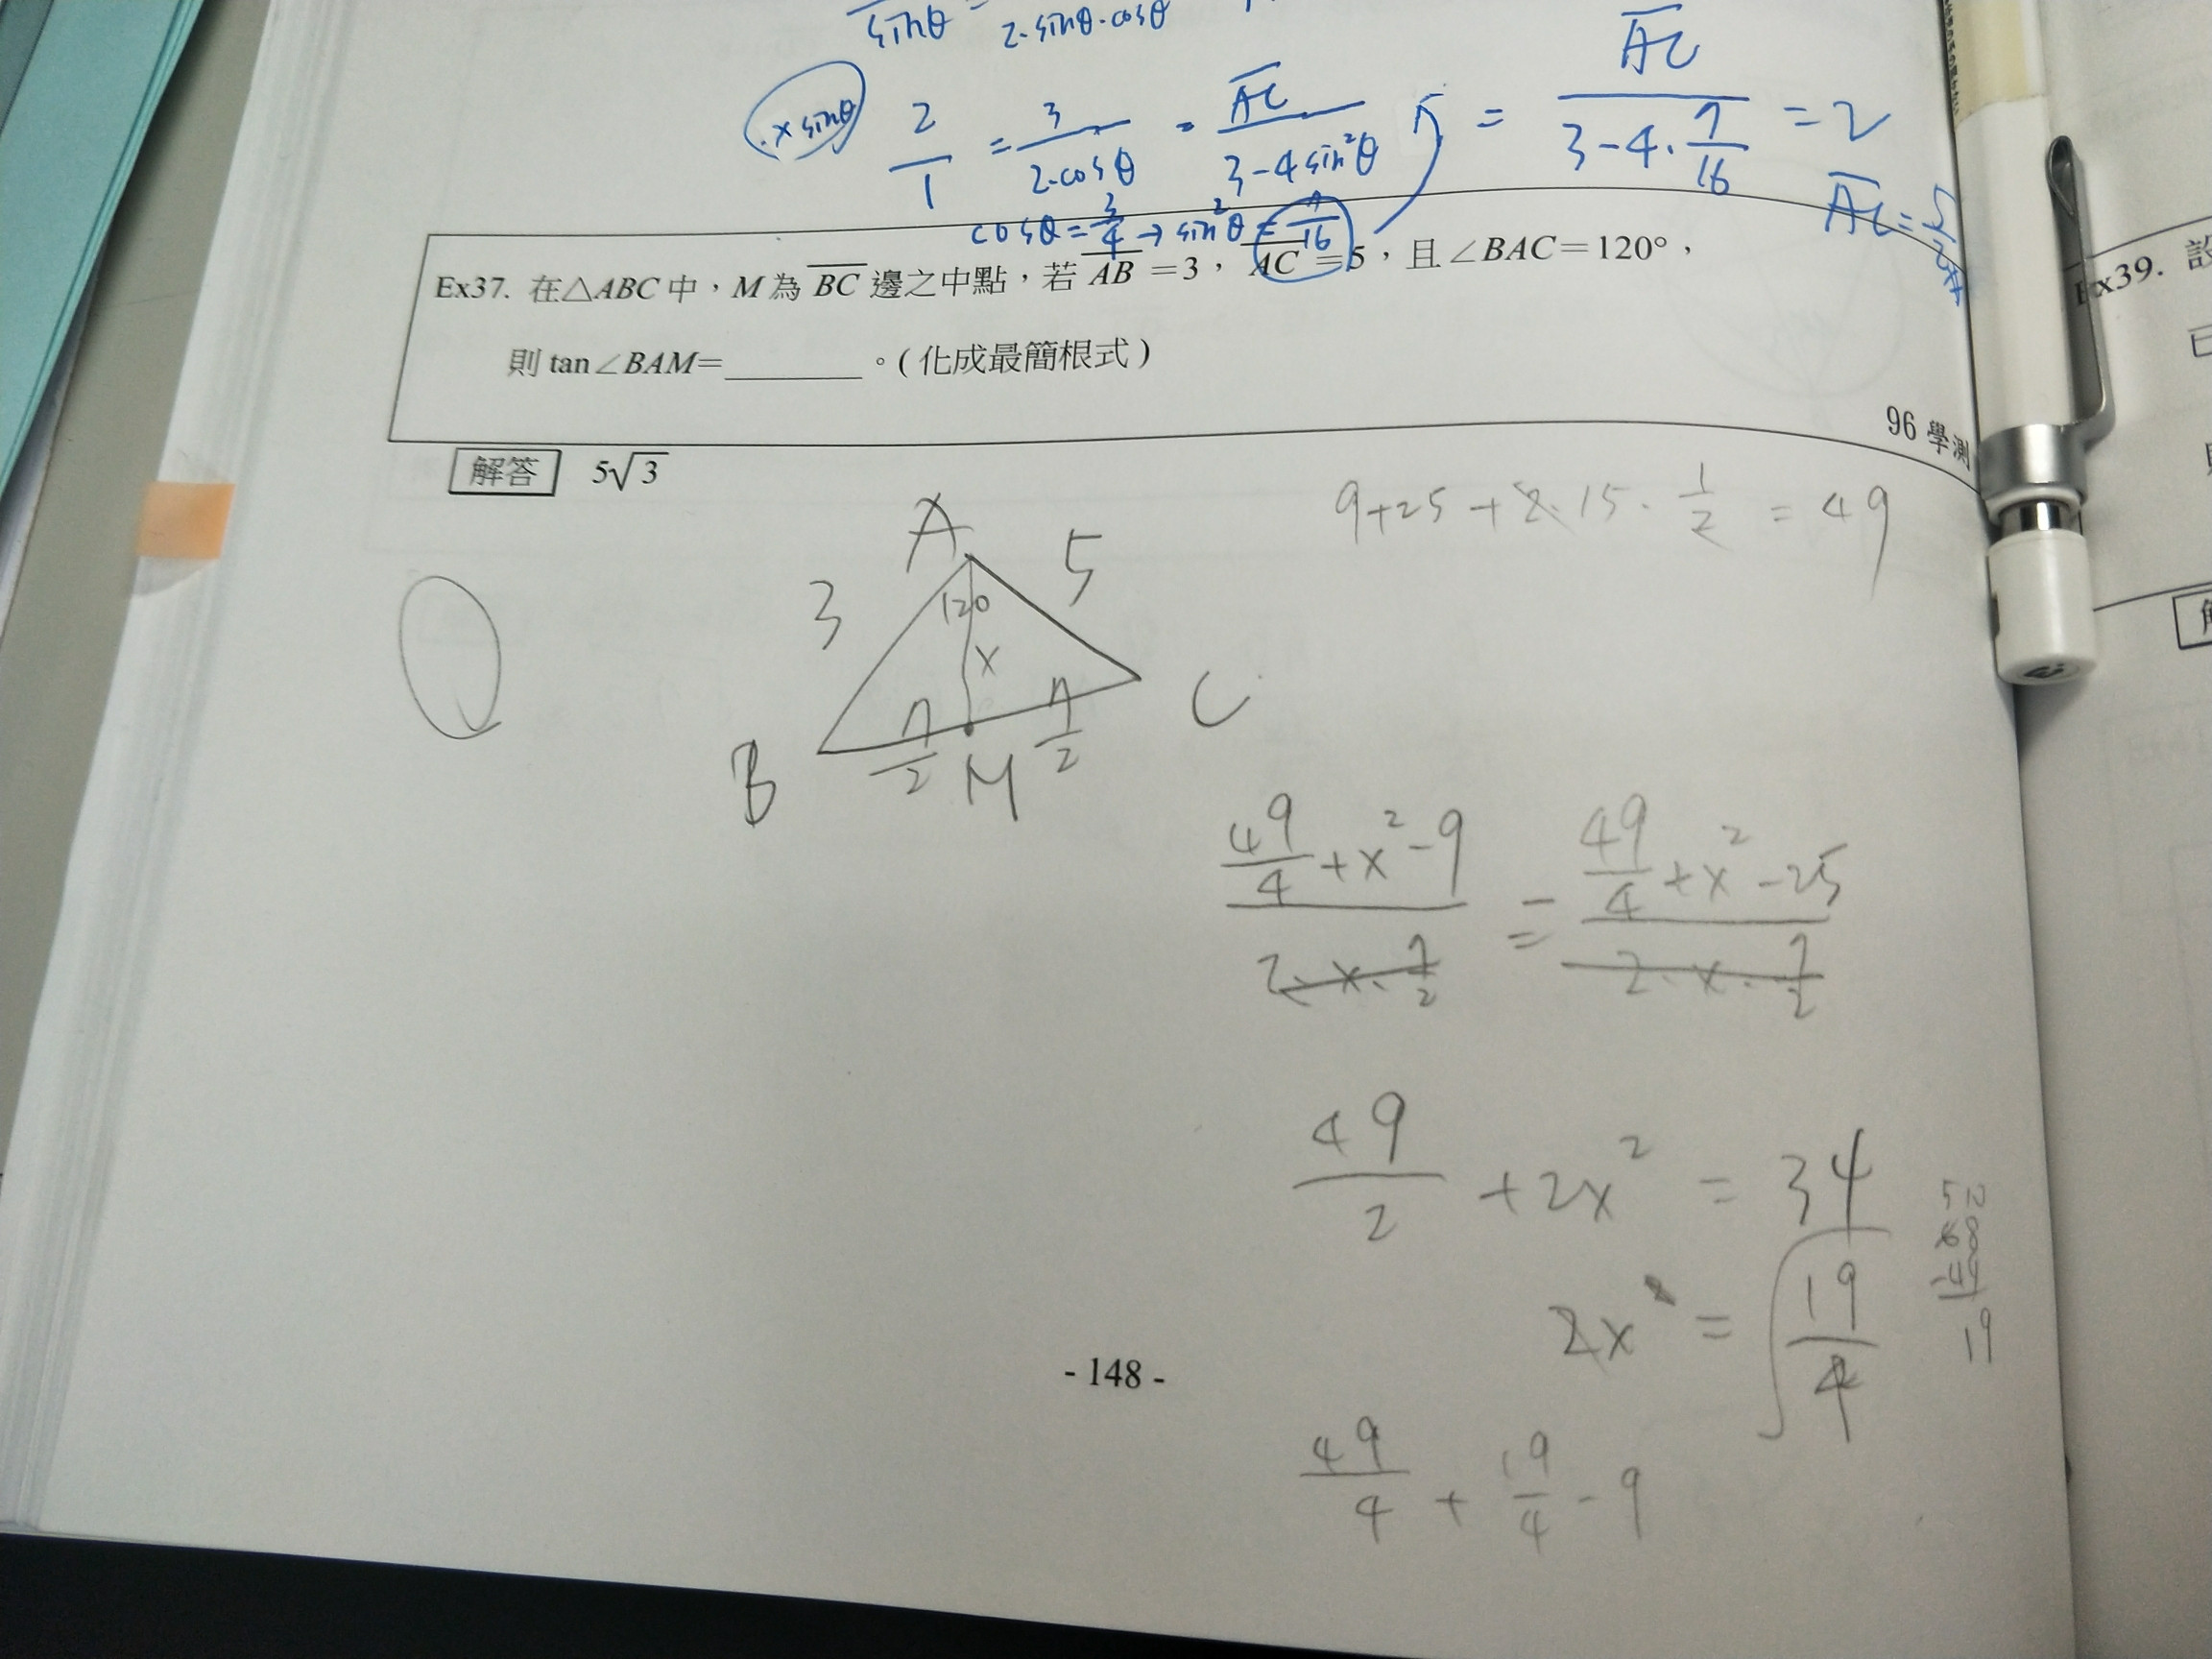 sinθ 2·sinθ·cosθ
×sinθ 2/1 = 3/2·cosθ = AC/3-4sin²θ = AC/3-4·7/16 = 2
cosθ = 3/4 → sin²θ = 7/16
AC = 5/2
Ex37. 在△ABC中,M為BC邊之中點,若AB=3,AC=5,且∠BAC=120°,
則tan∠BAM=________。(化成最簡根式)
96 學測
解答 5√3
9+25+2·15·1/2 = 49
A
3 5
120
x
7/2 7/2
B M C
49/4+x²-9 / 2·x·7/2 = 49/4+x²-25 / 2·x·7/2
49/2+2x² = 34
2x = √19/4
68
-49
19
49/4 + 19/4 - 9
- 148 -
Ex39. 設
已